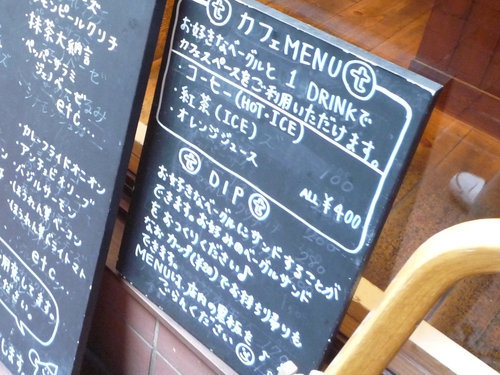 モンピールクリチ
抹茶大納言
ペッパーサラミ
ジェノベーゼ
etc...
カレーフライドオニオン
アンチョビオリーブ
バジルサーモン
ほうれん草ベーコン
etc...
㋝ カフェMENU ㋝
お好きなベーグルと 1 DRINKで
カフェスペースをご利用いただけます。
・コーヒー(HOT・ICE)
・紅茶(ICE)
・オレンジジュース
ALL ¥400
㋝ DIP ㋝
お好きなベーグルにサンドすることが
できます。お好みのベーグルサンド
をつくりください♪
なお、カップ(¥50)でお持ち帰りも
できます。
MENUは、店内の黒板を♪
ごらんください